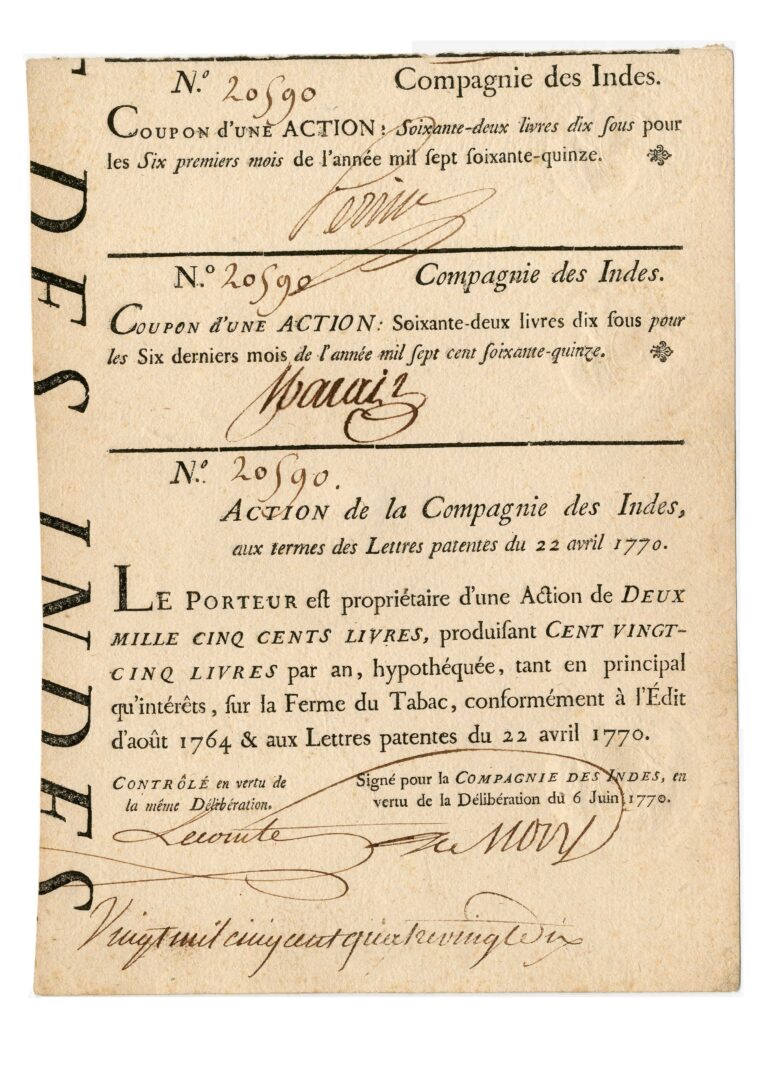 N.º 20590 Compagnie des Indes.
COUPON D'UNE ACTION: Soixante-deux livres dix ſous pour
les Six premiers mois de l'année mil ſept ſoixante-quinze.
N.º 20590 Compagnie des Indes.
COUPON D'UNE ACTION: Soixante-deux livres dix ſous pour
les Six derniers mois de l'année mil ſept cent ſoixante-quinze.
N.º 20590.
ACTION de la Compagnie des Indes,
aux termes des Lettres patentes du 22 avril 1770.
LE PORTEUR eſt propriétaire d'une Action de DEUX
MILLE CINQ CENTS LIVRES, produiſant CENT VINGT-
CINQ LIVRES par an, hypothéquée, tant en principal
qu'intérêts, ſur la Ferme du Tabac, conformément à l'Édit
d'août 1764 & aux Lettres patentes du 22 avril 1770.
CONTRÔLÉ en vertu de
la même Délibération.
Signé pour la COMPAGNIE DES INDES, en
vertu de la Délibération du 6 Juin 1770.
Lecomte
Vingt mil cinq cent quatre vingt dix
DES INDES